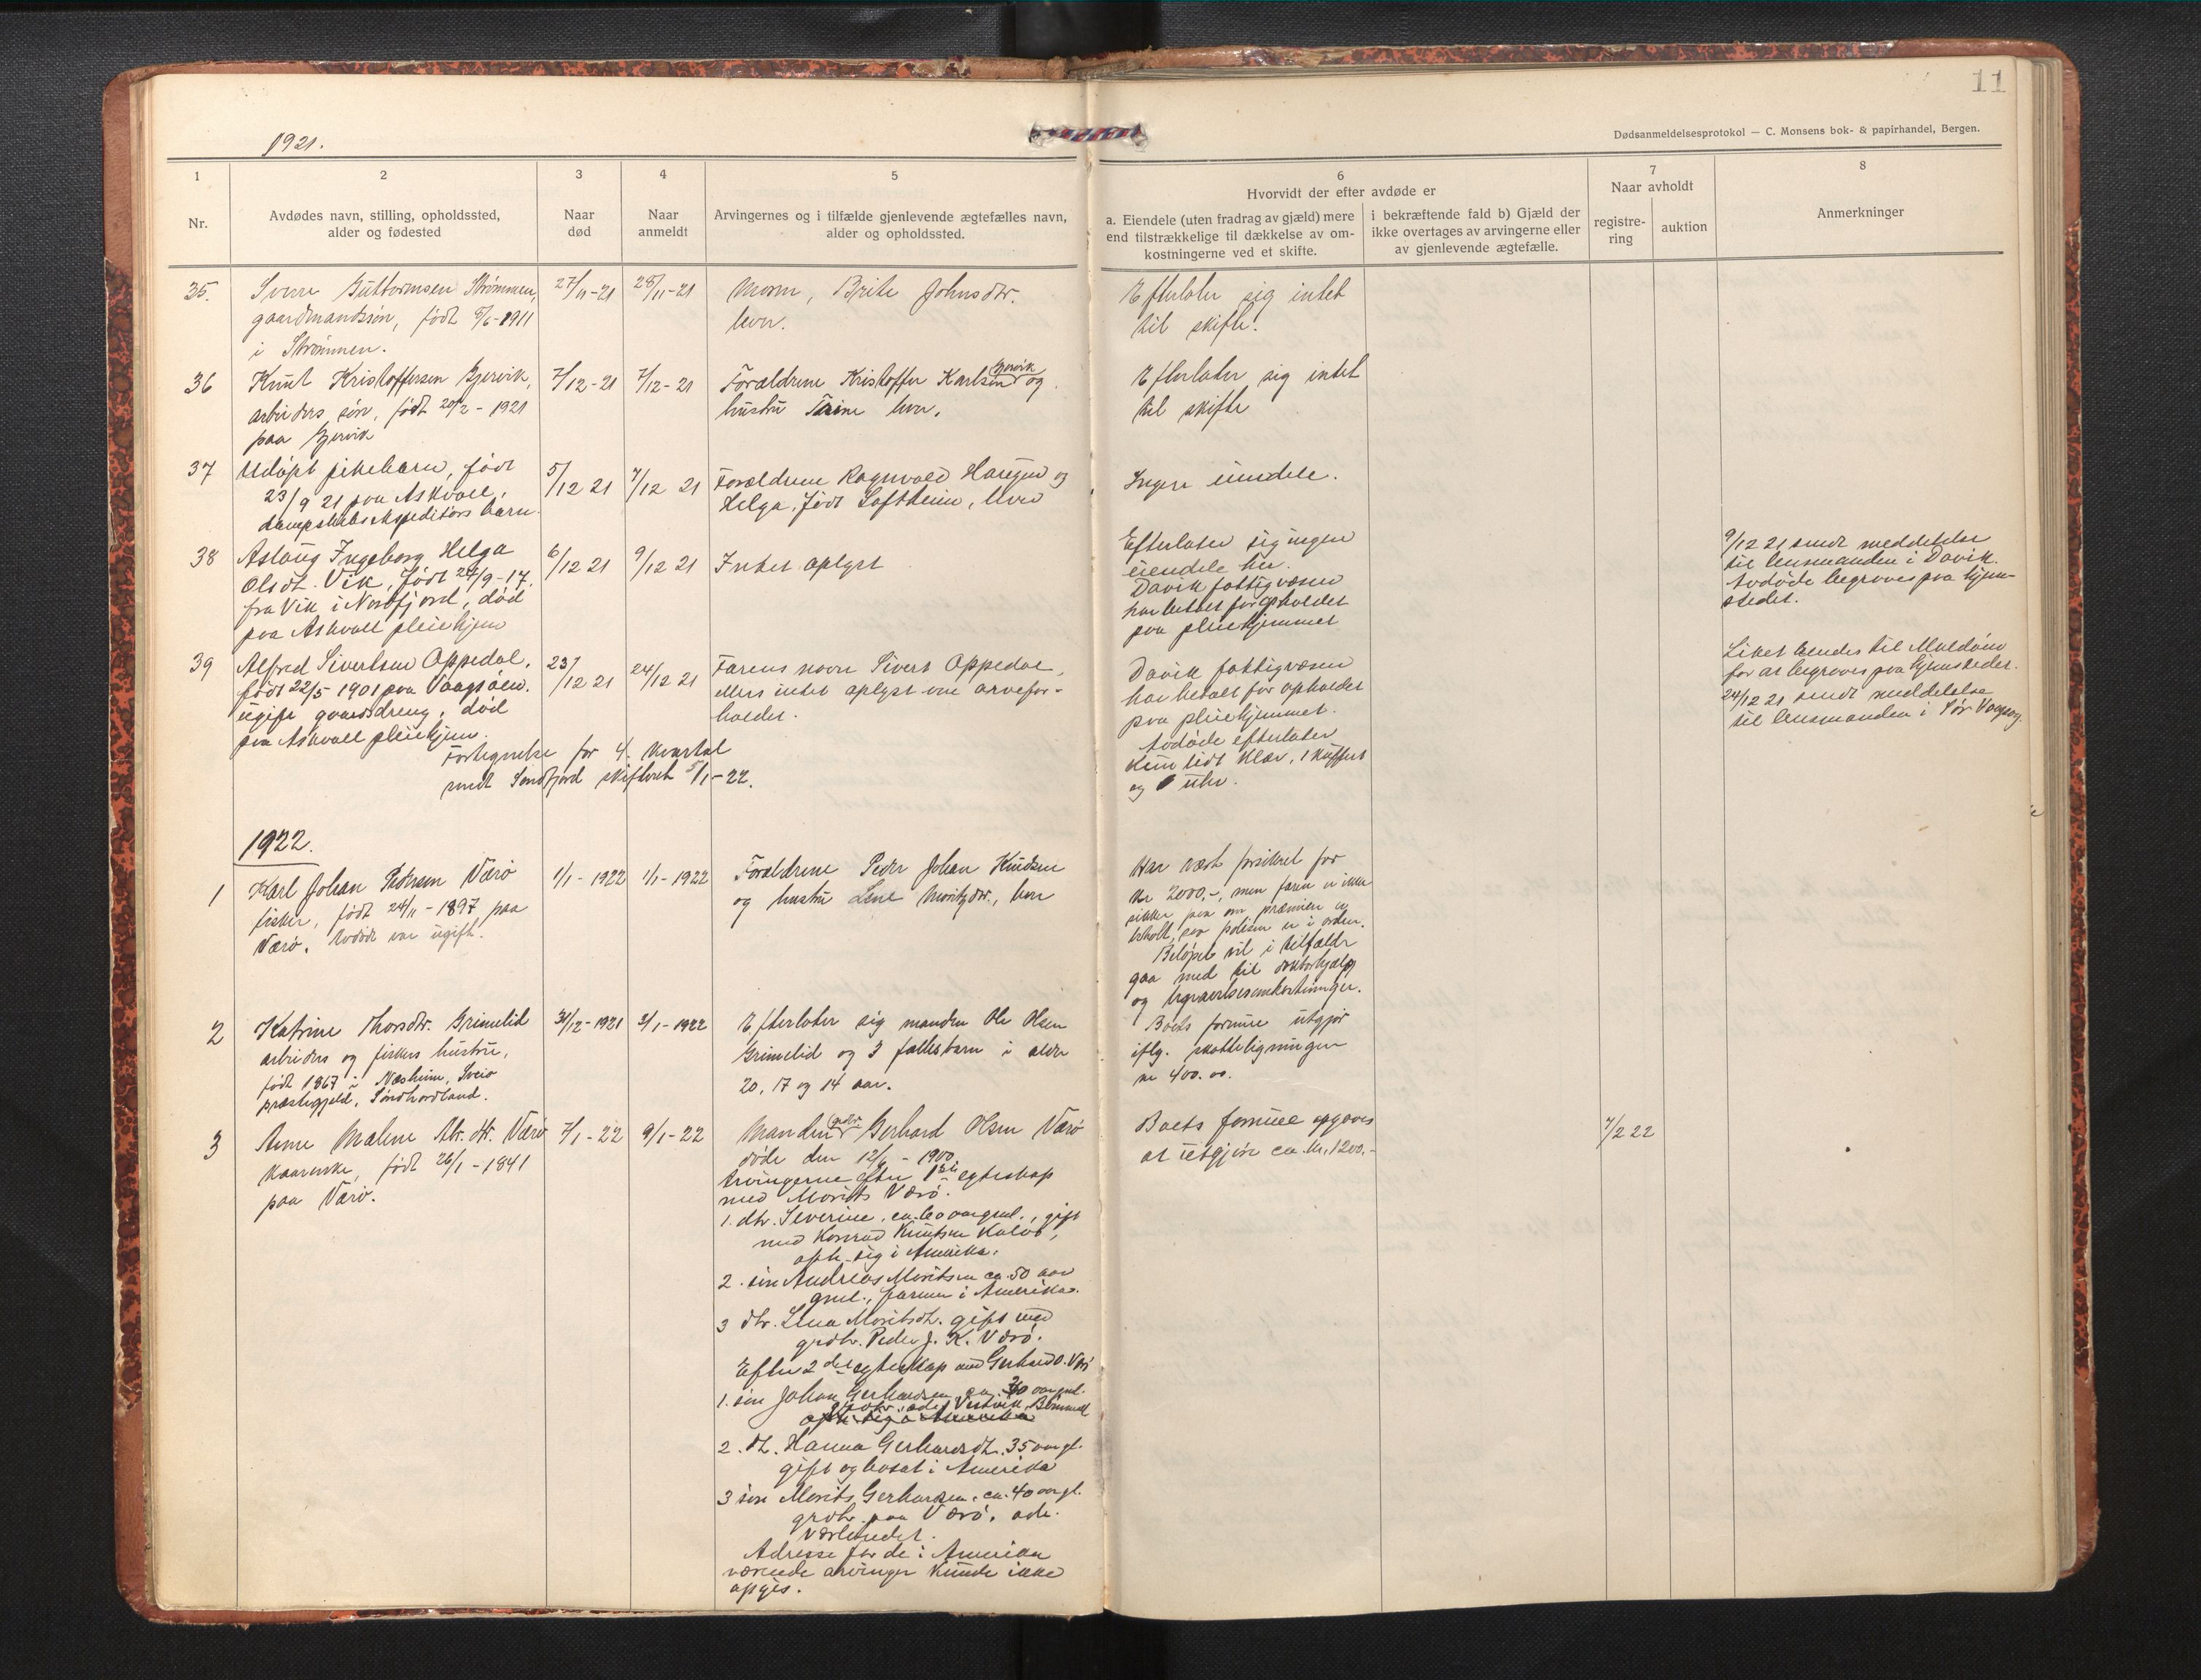 11
1921.
Dødsanmeldelsesprotokol — C. Monsens bok- & papirhandel, Bergen.
1
2
3
4
5
6
7
8
Nr.
Avdødes navn, stilling, opholdssted,
alder og fødested
Naar
død
Naar
anmeldt
Arvingernes og i tilfælde gjenlevende ægtefælles navn,
alder og opholdssted.
Hvorvidt der efter avdøde er
a. Eiendele (uten fradrag av gjæld) mere
end tilstrækkelige til dækkelse av om-
kostningerne ved et skifte.
i bekræftende fald b) Gjæld der
ikke overtages av arvingerne eller
av gjenlevende ægtefælle.
Naar avholdt
registre-
ring
auktion
Anmerkninger
35.
Sverre Guttormsen Strømmen,
gaardmandssøn, født 8/6-1911
i Strømmen.
27/11-21
28/11-21
Moren, Brite Johnsdtr.
hvr.
Efterlater sig intet
til skifte.
36
Knut Kristoffersen Gjervik,
arbeiders søn, født 20/2-1921
paa Gjervik
7/12-21
7/12-21
Forældrene Kristoffer Karlsen Gjervik og
hustru Trine hvr.
Efterlater sig intet
til skifte
37
Udøpt pikebarn, født
23/9 21 paa Askvoll,
dampskibsekspeditørs barn.
5/12 21
7/12 21
Forældrene Ragnvald Haugen og
Helga, født Loftheim, hvr
Ingen eiendele.
38
Aslaug Ingeborg Helga
Olsdt. Vik, født 24/9-17.
fra Vik i Nordfjord, død
paa Askvoll pleiehjem
6/12 21
9/12 21
Intet oplyst
Efterlater sig ingen
eiendele her.
Davik fattigvæsen
har betalt for opholdet
paa pleiehjemmet
9/12 21 sendt meddelelse
til lensmanden i Davik.
Avdøde begraves paa hjem-
stedet.
39
Alfred Sivertsen Oppedal,
født 22/5 1901 paa Vaagsøen.
ugift gaardsdreng, død
paa Askvoll pleiehjem.
23/12 21
24/12 21
Farens navn Sivert Oppedal,
ellers intet oplyst om arvefor-
holdet.
Davik fattigvæsen
har betalt for opholdet
paa pleiehjemmet.
Avdøde efterlater
kun lidt klær, 1 kuffert
og 1 uhr.
Liket sendes til Maaløen
for at begraves paa hjemstedet.
24/12 21 sendt meddelelse
til lensmanden i Sør Vaagsøy.
Fortegnelse for 4. kvartal
sendt Søndfjord skifteret 5/1-22.
1922.
1
Karl Johan Pedersen Værø
fisker, født 24/11-1897 paa
Værø. Avdøde var ugift.
1/1-1922
1/1-1922
Forældrene Peder Johan Knudsen
og hustru Lene Moritzdtr., hvr
Har vært forsikret for
kr 2000,-, men faren er ikke
sikker paa om præmien er
betalt, saa polisen er i orden.
Beløpet vil i tilfælde
gaa med til doktorhjælp
og begravelsesomkostninger.
2
Katrine Thorsdtr. Grimelid
arbeiders og fiskers hustru,
født 1867 i Næsheim, Sveio
præstegjeld, Søndhordland.
31/12-1921
3/1-1922
Efterlater sig manden Ole Olsen
Grimelid og 3 fællesbarn i alder
20, 17 og 14 aar.
Boets formue utgjør
iflg. skatteligningen
kr 400.00.
3
Anne Malene Abr. dtr. Værø
kaarenke, født 26/1-1841
paa Værø.
7/1-22
9/1-22
Manden grdbr. Gerhard Olsen Værø
døde den 12/6-1900.
Arvingerne efter 1ste egteskap
med Morits Værø.
1. dtr. Severine, ca. 60 aar gml., gift
med Konrad Knutsen Kalvø,
oph. sig i Amerika.
2. søn Andreas Moritsen ca. 50 aar
gml., farmer i Amerika.
3 dtr. Lena Moritsdt. gift med
grdbr. Peder J. K. Værø.
Efter 2det egteskap med Gerhard O. Værø
1. søn Johan Gerhardsen, ca. 30 aar gml.
Vestvik, Bømmel
oph. sig i Amerika
2. dt. Hanna Gerhardsdt. 35 aar gl.
gift og bosat i Amerika
3 søn Morits Gerhardsen, ca. 40 aar gl.
grdbr. paa Værø, adr.
Værlandet.
Adresse for de i Amerika
værende arvinger kunde ikke
opgis.
Boets formue opgaves
at utgjøre ca. kr. 1200.-
7/2 22